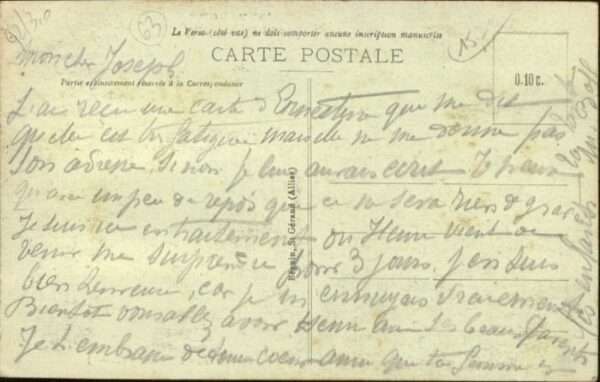 63
Le Verso (côté vue) ne doit comporter aucune inscription manuscrite
CARTE POSTALE
Partie exclusivement réservée à la Correspondance
0.10 c.
mon cher Joseph
J'ai reçu une carte d'Ernestine que me dit
qu'elle est très fatiguée mais elle ne me donne pas
son adresse. Si non je lui aurais écrit
qu'avec un peu de repos que ce ne sera rien de grave
Je suis en traitement ou Henri vient de
venir me surprendre pour 3 jours. J'en suis
bien heureuse, car je m'ennuyais vraiement
Bientôt vous allez avoir Henri les beaux parents
Je t'embrasse de tout coeur ainsi que ta femme et
les enfants
St Géraud (Allier)